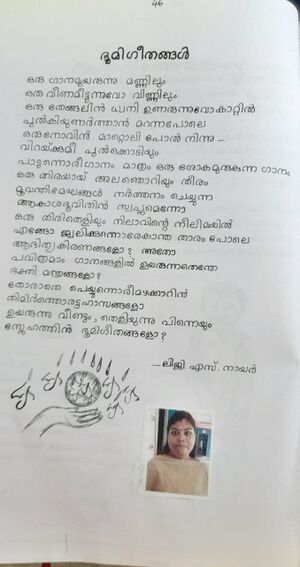 46
ഭൂമിഗീതങ്ങൾ
ഒരു ഗാനമുയരുന്നു മണ്ണിലും
ഒരു വീണമീട്ടുന്നുവോ വിണ്ണിലും
ഒരു തേങ്ങലിൻ ധ്വനി ഉണരുന്നുവോകാറ്റിൽ
പുൽകിയുണർത്താൻ മറന്നപോലെ
ഒരുനോവിൻ മാറ്റൊലി പോൽ നിന്നു -
വിറയ്ക്കുമീ പുൽക്കൊടിയും
പാട്ടന്നൊരീഗാനം മാത്രം ഒരു ശോകമുരുകുന്ന ഗാനം
ഒരു തിരയായ് അലഞൊറിയും തീരം
മൂവന്തിമേഘങ്ങൾ നർത്തനം ചെയ്യുന്ന
ആകാശഭൂവിതിൻ സ്വപ്നമെന്നോ
ഒരു തിരിതെളിയും നിലാവിന്റെ നീലിമയിൽ
എങ്ങോ ജ്വലിക്കുന്നൊരേകാന്ത താരം പോലെ
ആദിത്യകിരണങ്ങളോ? അതോ
പവിത്രമാം ഗാനങ്ങളിൽ ഉയരുന്നതെന്തേ
ഭക്തി മന്ത്രങ്ങളോ?
തോരാതെ പെയ്യുന്നൊരീമഴക്കാറിൻ
തിമിർത്തൊരട്ടഹാസങ്ങളോ
ഉയരുന്നു വീണ്ടും, തെളിയുന്നു പിന്നെയും
സ്നേഹത്തിൻ ഭൂമിഗീതങ്ങളോ?
— ലിജി എസ്. നായർ